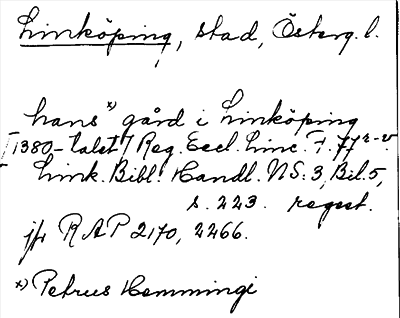 Linköping, stad, Österg. l.
hans*) gård i Linköping
[1380-talet] Reg. Eccl. Linc. F. 77 r-v
Link. Bibl. Handl. N.S. 3, Bil. 5,
s. 223. regest.
jfr RAP 2170, 2266.
*) Petrus Hemmingi